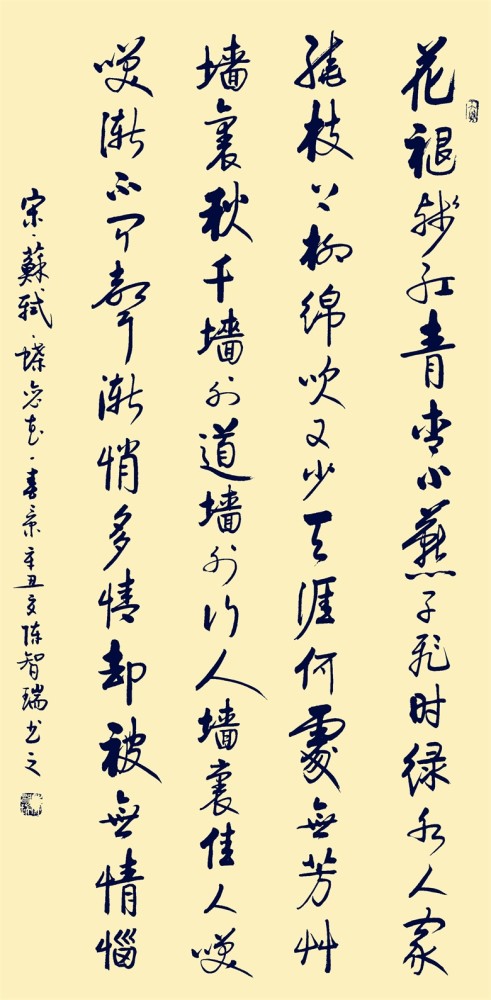 花褪残红青杏小燕子飞时绿水人家
绕枝上柳绵吹又少天涯何處無芳艸
墙裏秋千墙外道墙外行人墙裏佳人咲
咲渐不闻聲渐悄多情却被無情惱
宋·蘇轼·蝶恋花·春景辛丑夏陈智瑞书之